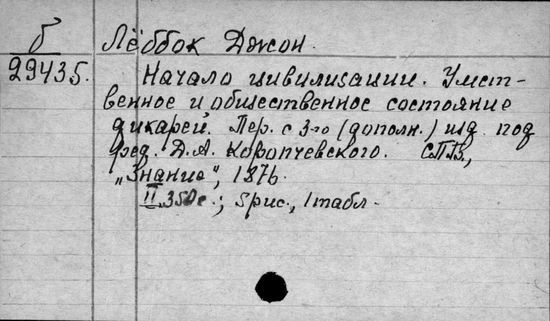 б Лёббок Джон.
29435. Начало цивилизации. Умст-
венное и общественное состояние
дикарей. Пер. с 3-го (дополн.) изд. под
ред. Д.А. Коропчевского. СПБ.,
„Знание", 1876.
II, 350 с.; 5 рис., 1 табл.